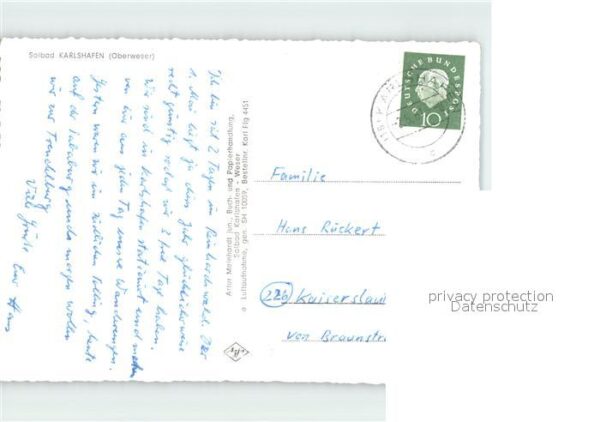 Solbad KARLSHAFEN (Oberweser)
Ich bin seit 2 Tagen im Reinhardswald. Der
1. Mai liegt ja dieses Jahr glücklicherweise
recht günstig sodaß wir 3 freie Tage haben.
Wir sind in Karlshafen stationiert und machen
von hier aus jeden Tag unsere Wanderungen.
Gestern waren wir im südlichen Solling, heute
auf der Sababurg und morgen wollen
wir zur Trendelburg
Viele Grüße Euer Hans
Artur Meinhardt jun., Buch- und Papierhandlung,
Solbad Karlshafen - Weser
o Luftaufnahme, gen. SH 10009, Bestellnr. Karl Flg 4451
DEUTSCHE BUNDESPOST
10
Familie
Hans Rückert
(22b) Kaiserslau
von Braunstr
privacy protection
Datenschutz